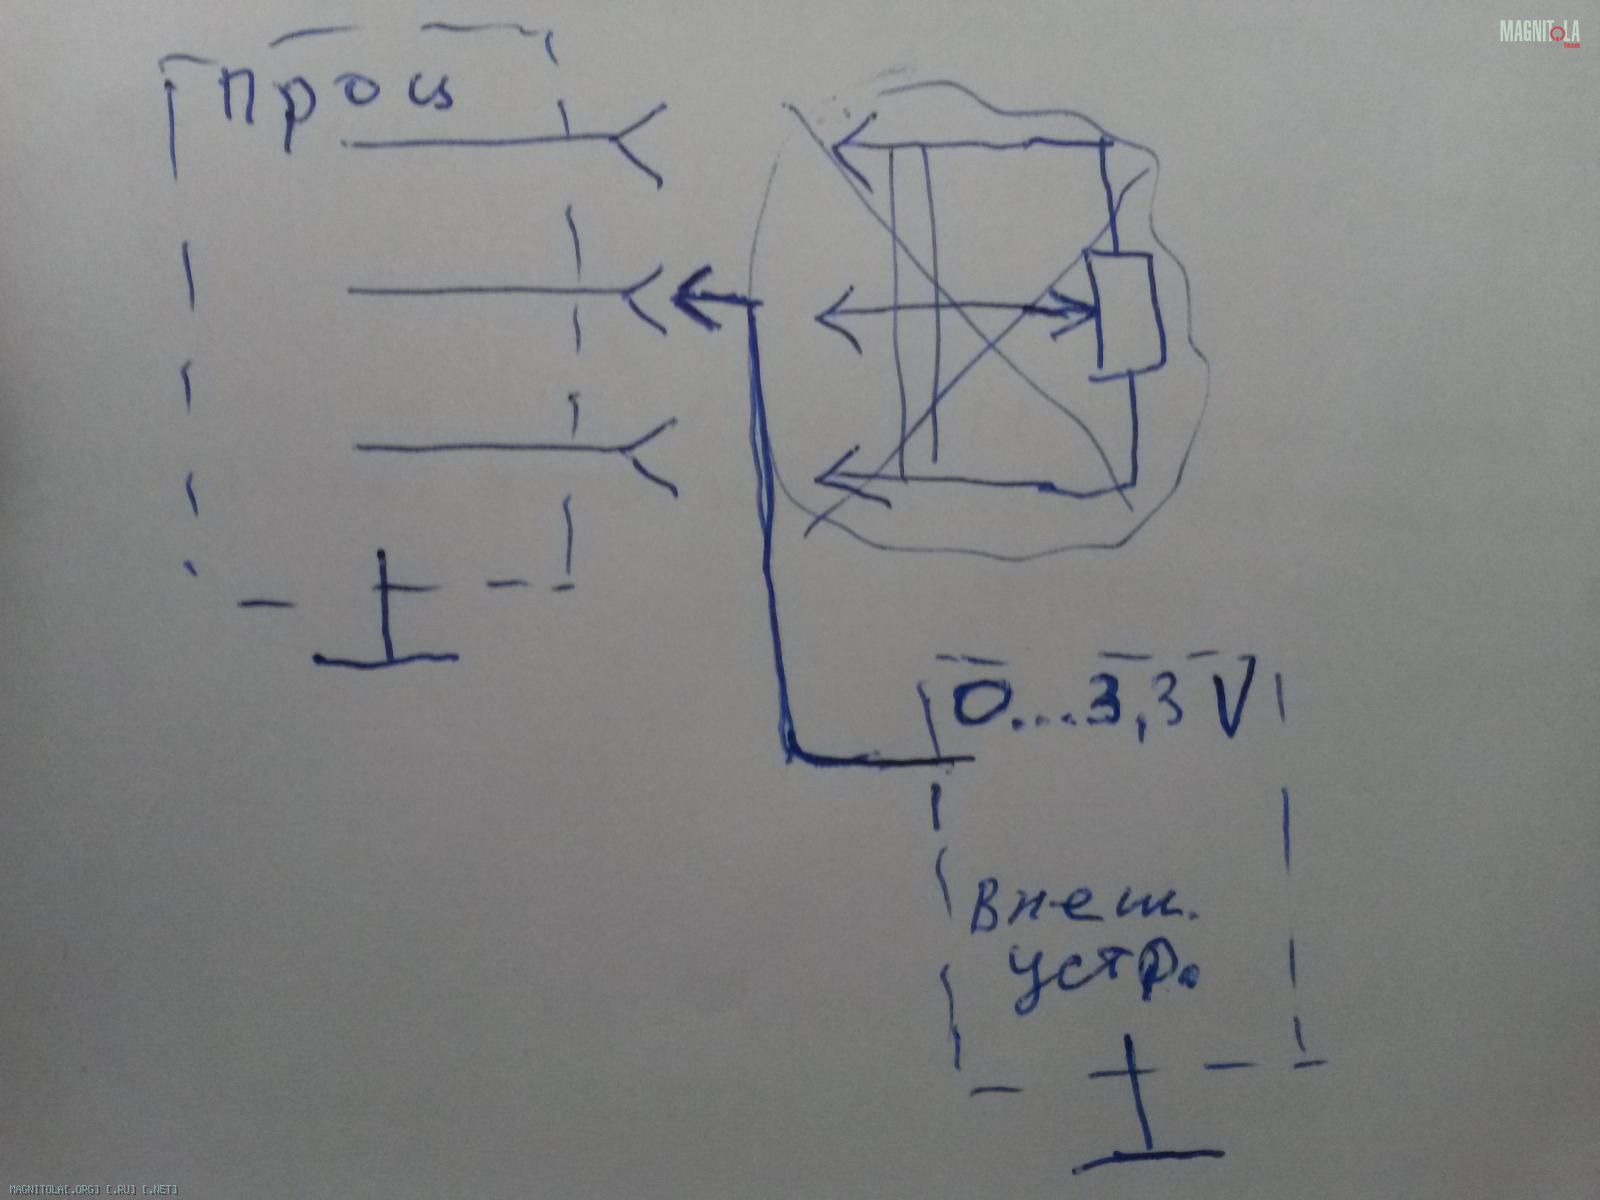 MAGNITOLA
Team
проц
0...3,3V
Внеш.
устр.
MAGNITOLA[.ORG] [.RU] [.NET]